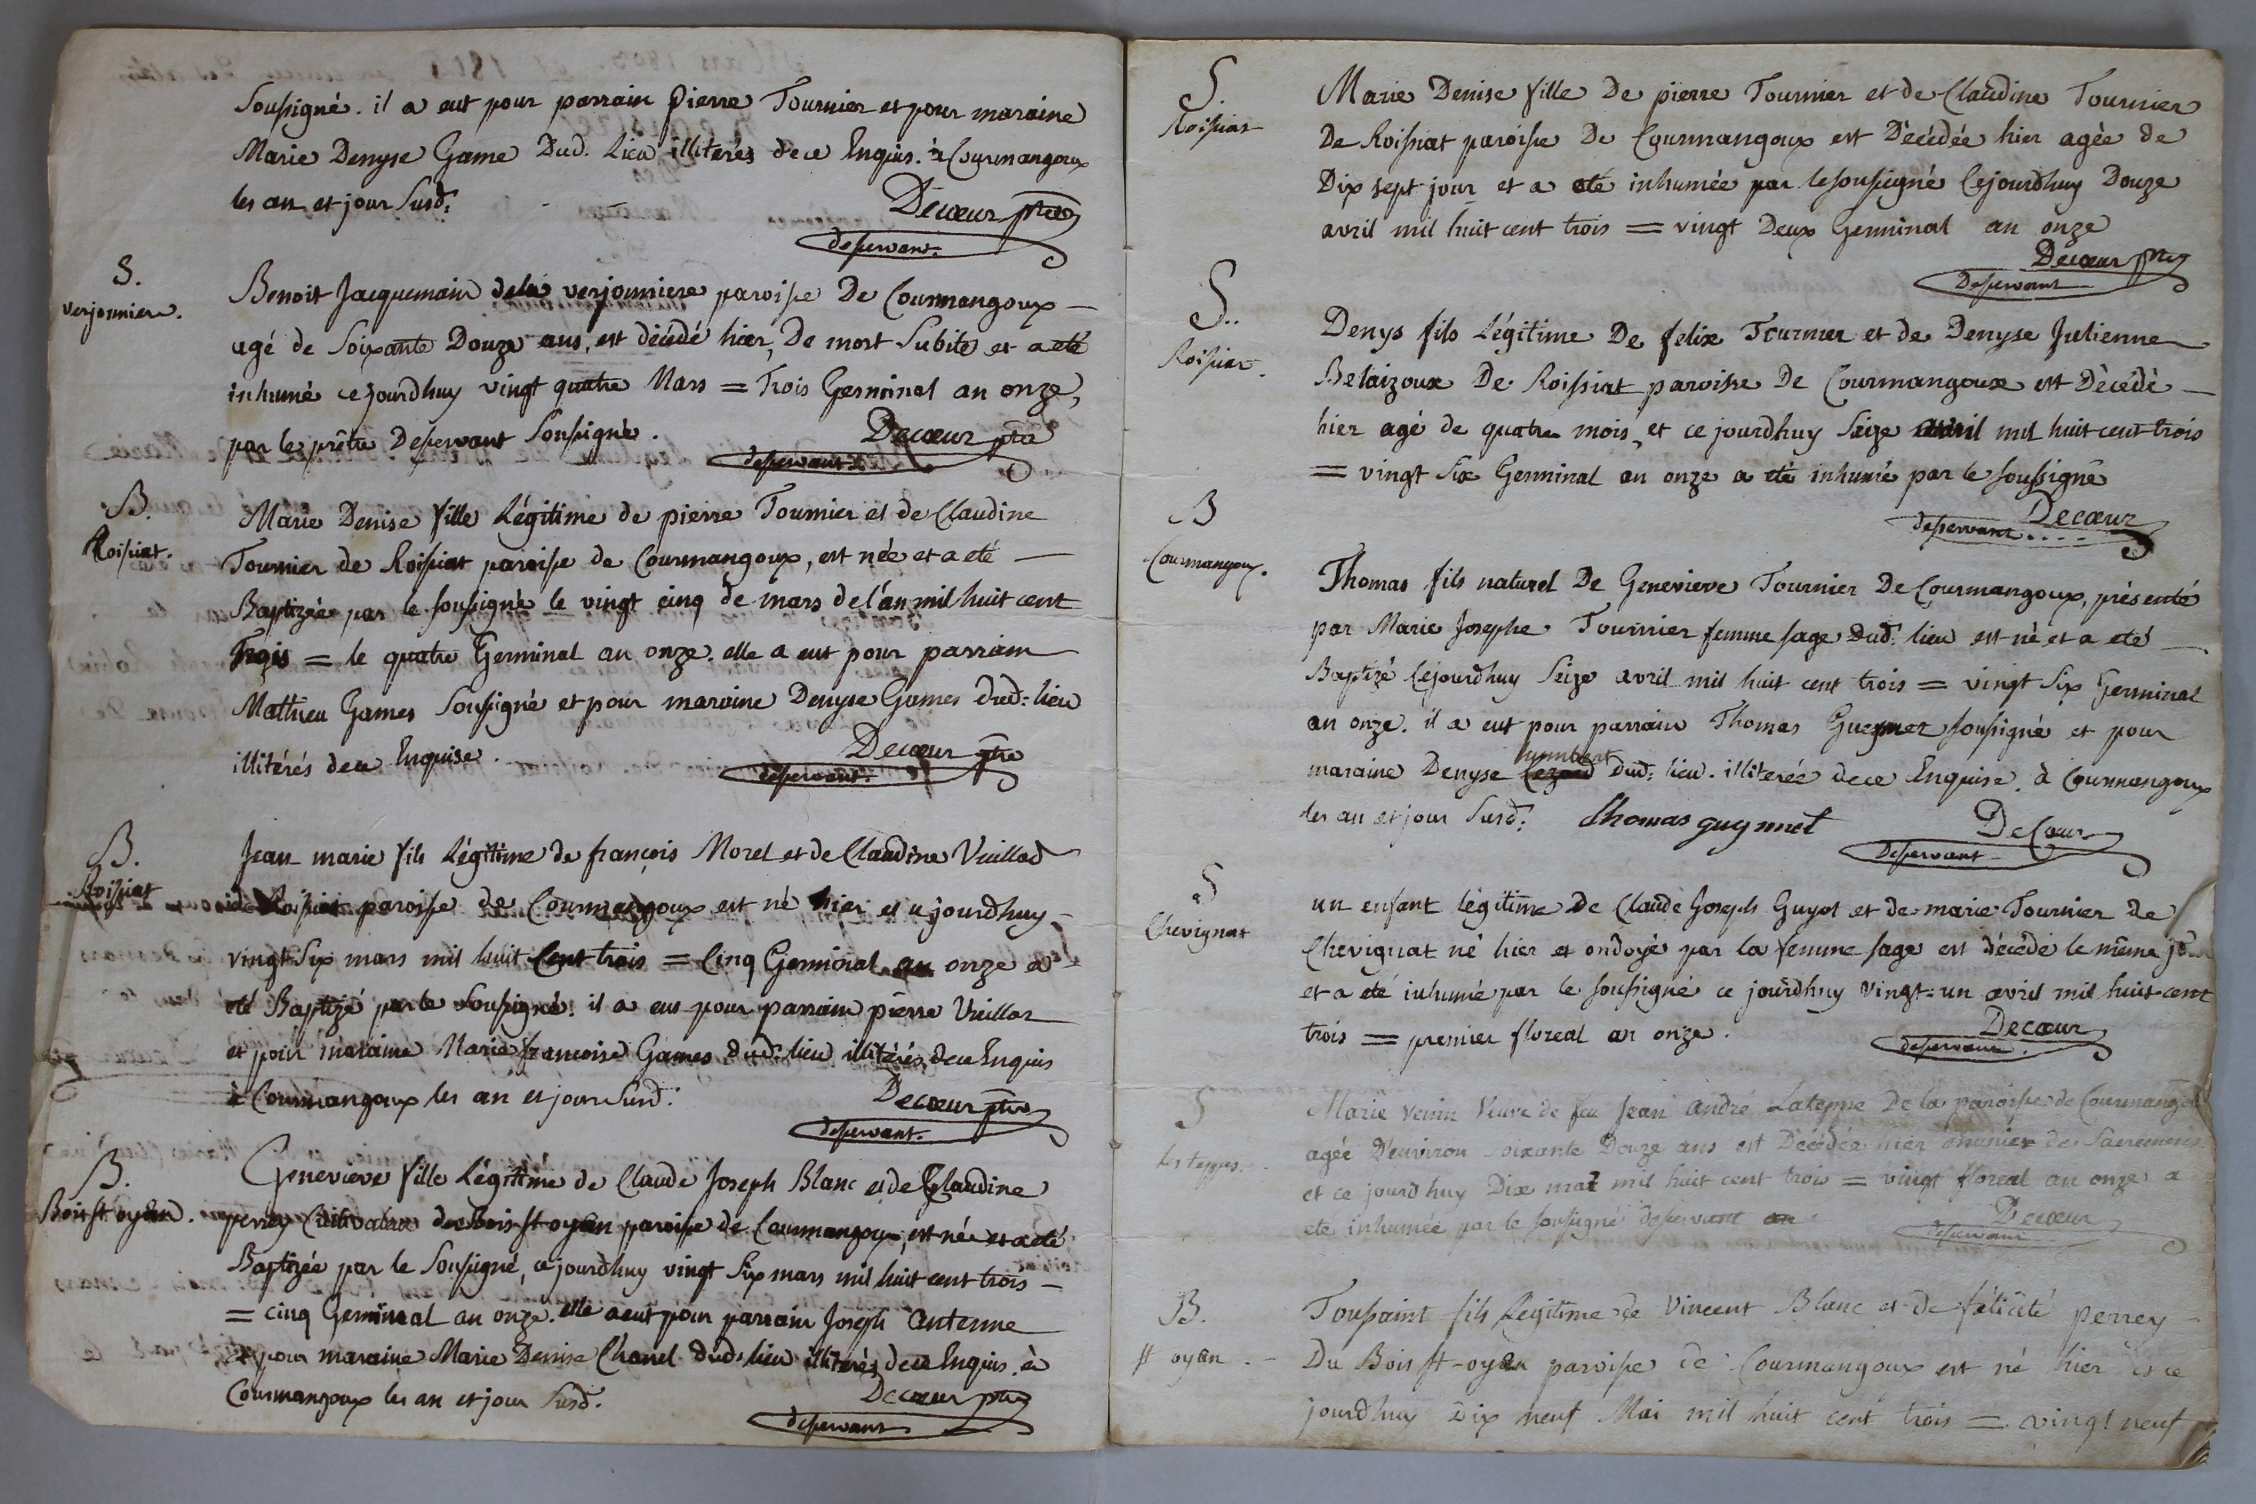 Soussigné. il a eut pour parrain pierre Tournier et pour maraine
Marie Denyse Game Dud. Lieu illiterés de ce Enquis. à Courmangoux
les an et jour Susd:
Decœur ptre
desservant.
S.
verjonniere.
Benoit Jacquemain dela verjonniere paroisse De Courmangoux
agé de Soixante Douze ans, est décédé hier, De mort Subite et a eté
inhumé ce jourdhuy vingt quatre Mars = Trois Germinal an onze,
par le prêtre Desservant Soussigné.
Decœur ptre
desservant
B.
Roissiat.
Marie Denise fille Légitime de pierre Tournier et de Claudine
Tournier de Roissiat paroisse de Courmangoux, est née et a eté
Baptizée par le soussigné le vingt cinq de mars de l'an mil huit cent
Trois = le quatre Germinal an onze. elle a eut pour parrain
Mathieu Games Soussigné et pour maraine Denyse Games dud: lieu
illitérés de ce Enquise.
Decœur ptre
desservant.
B.
Roissiat
Jean marie fils Légitime de françois Morel et de Claudine Vuillod
de Roissiat paroisse de Courmangoux est né hier et ce jourdhuy
vingt Six mars mil huit Cent trois = Cinq Germinal an onze a
eté Baptizé par le Soussigné. il a eu pour parrain pierre Vuillar
et pour maraine Marie francoise Games dud: lieu illitérés de ce Enquis
à Courmangoux les an et jour Susd:
Decœur ptre
desservant.
B.
Bois st oyen.
Genevieve fille Légitime de Claude Joseph Blanc et de Claudine
perrey Cultivateur de Bois st oyen paroisse de Courmangoux, est née et a eté
Baptizée par le Soussigné, ce jourdhuy vingt Six mars mil huit cent trois
= cinq Germinal an onze. elle a eut pour parrain Joseph Antenne
et pour maraine Marie Denise Chanel dud: lieu illiterés de ce Enquis. à
Courmangoux les an et jour Susd.
Decœur ptre
desservant
S.
Roissiat
Marie Denise fille De pierre Tournier et de Claudine Tournier
De Roissiat paroisse De Courmangoux est Décédée hier agée de
Dix sept jour et a eté inhumée par le soussigné Cejourdhuy Douze
avril mil huit cent trois = vingt Deux Germinal an onze
Decœur ptre
Desservant
S..
Roissiat.
Denys fils Légitime De felix Tournier et de Denyse Julienne
Belaizoux De Roissiat paroisse De Courmangoux est Décédé
hier agé de quatre mois, et ce jourdhuy Seize avril mil huit cent trois
= vingt Six Germinal an onze a eté inhumé par le soussigné
Decœur
desservant....
B
Courmangoux.
Thomas fils naturel De Genevieve Tournier De Courmangoux, présenté
par Marie Josephe Tournier femme sage Dud: lieu est né et a eté
Baptizé Cejourdhuy Seize avril mil huit cent trois = vingt Six Germinal
an onze. il a eut pour parrain Thomas Guymet soussigné et pour
humbert
maraine Denyse Dud: lieu. illiterée de ce Enquise. à Courmangoux
les an et jour Susd: Thomas guymet
DeCœur
Desservant
S
Chevignat
un enfant légitime De Claude Joseph Guyot et de marie Tournier de
Chevignat né hier et ondoyé par la femme sage est décédé le même jour
et a eté inhumé par le soussigné ce jourdhuy vingt=un avril mil huit cent
trois = premier floreal an onze.
Decœur
desservant.
S
les teppes.
Marie Veuve de feu Jean andré Lateppe De la paroisse de Courmangoux
agée D'environ soixante Douze ans est Décédée hier munie de Sacremens
et ce jourdhuy Dix mai mil huit cent trois = vingt floreal an onze a
eté inhumée par le soussigné desservant
Decœur
desservant
B.
st oyen.
Toussaint fils Légitime de Vincent Blanc et de félicité perrey
Du Bois st-oyen paroisse de Courmangoux est né hier et ce
jourdhuy Dix neuf Mai mil huit cent trois = vingt neuf